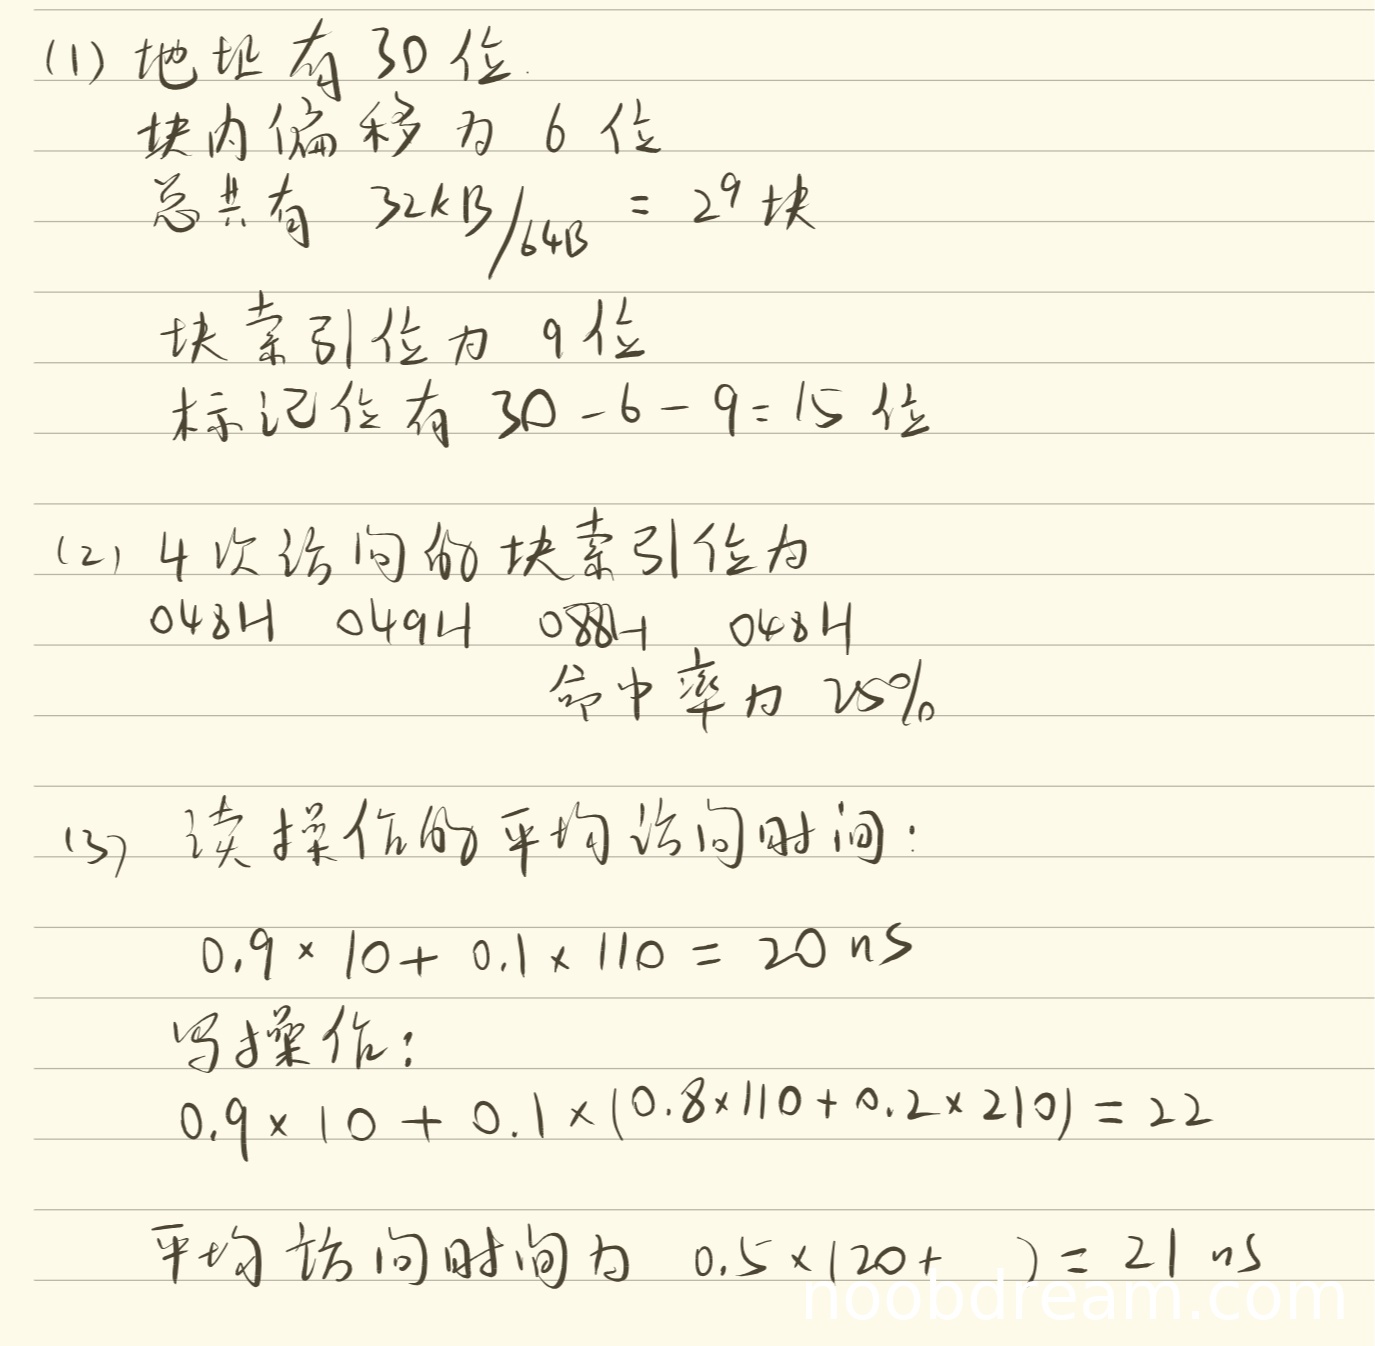 (1) 地址有30位.
块内偏移为 6 位
总共有 32kB/64B = 2⁹ 块
块索引位为 9位
标记位有 30-6-9=15 位
(2) 4次访问的块索引位为
048H 049H 088H 048H
命中率为 25%
(3) 读操作的平均访问时间:
0.9 × 10 + 0.1 × 110 = 20 ns
写操作:
0.9 × 10 + 0.1 × (0.8×110 + 0.2 × 210) = 22
平均访问时间为 0.5 × (20+ ) = 21 ns
noobdream.com